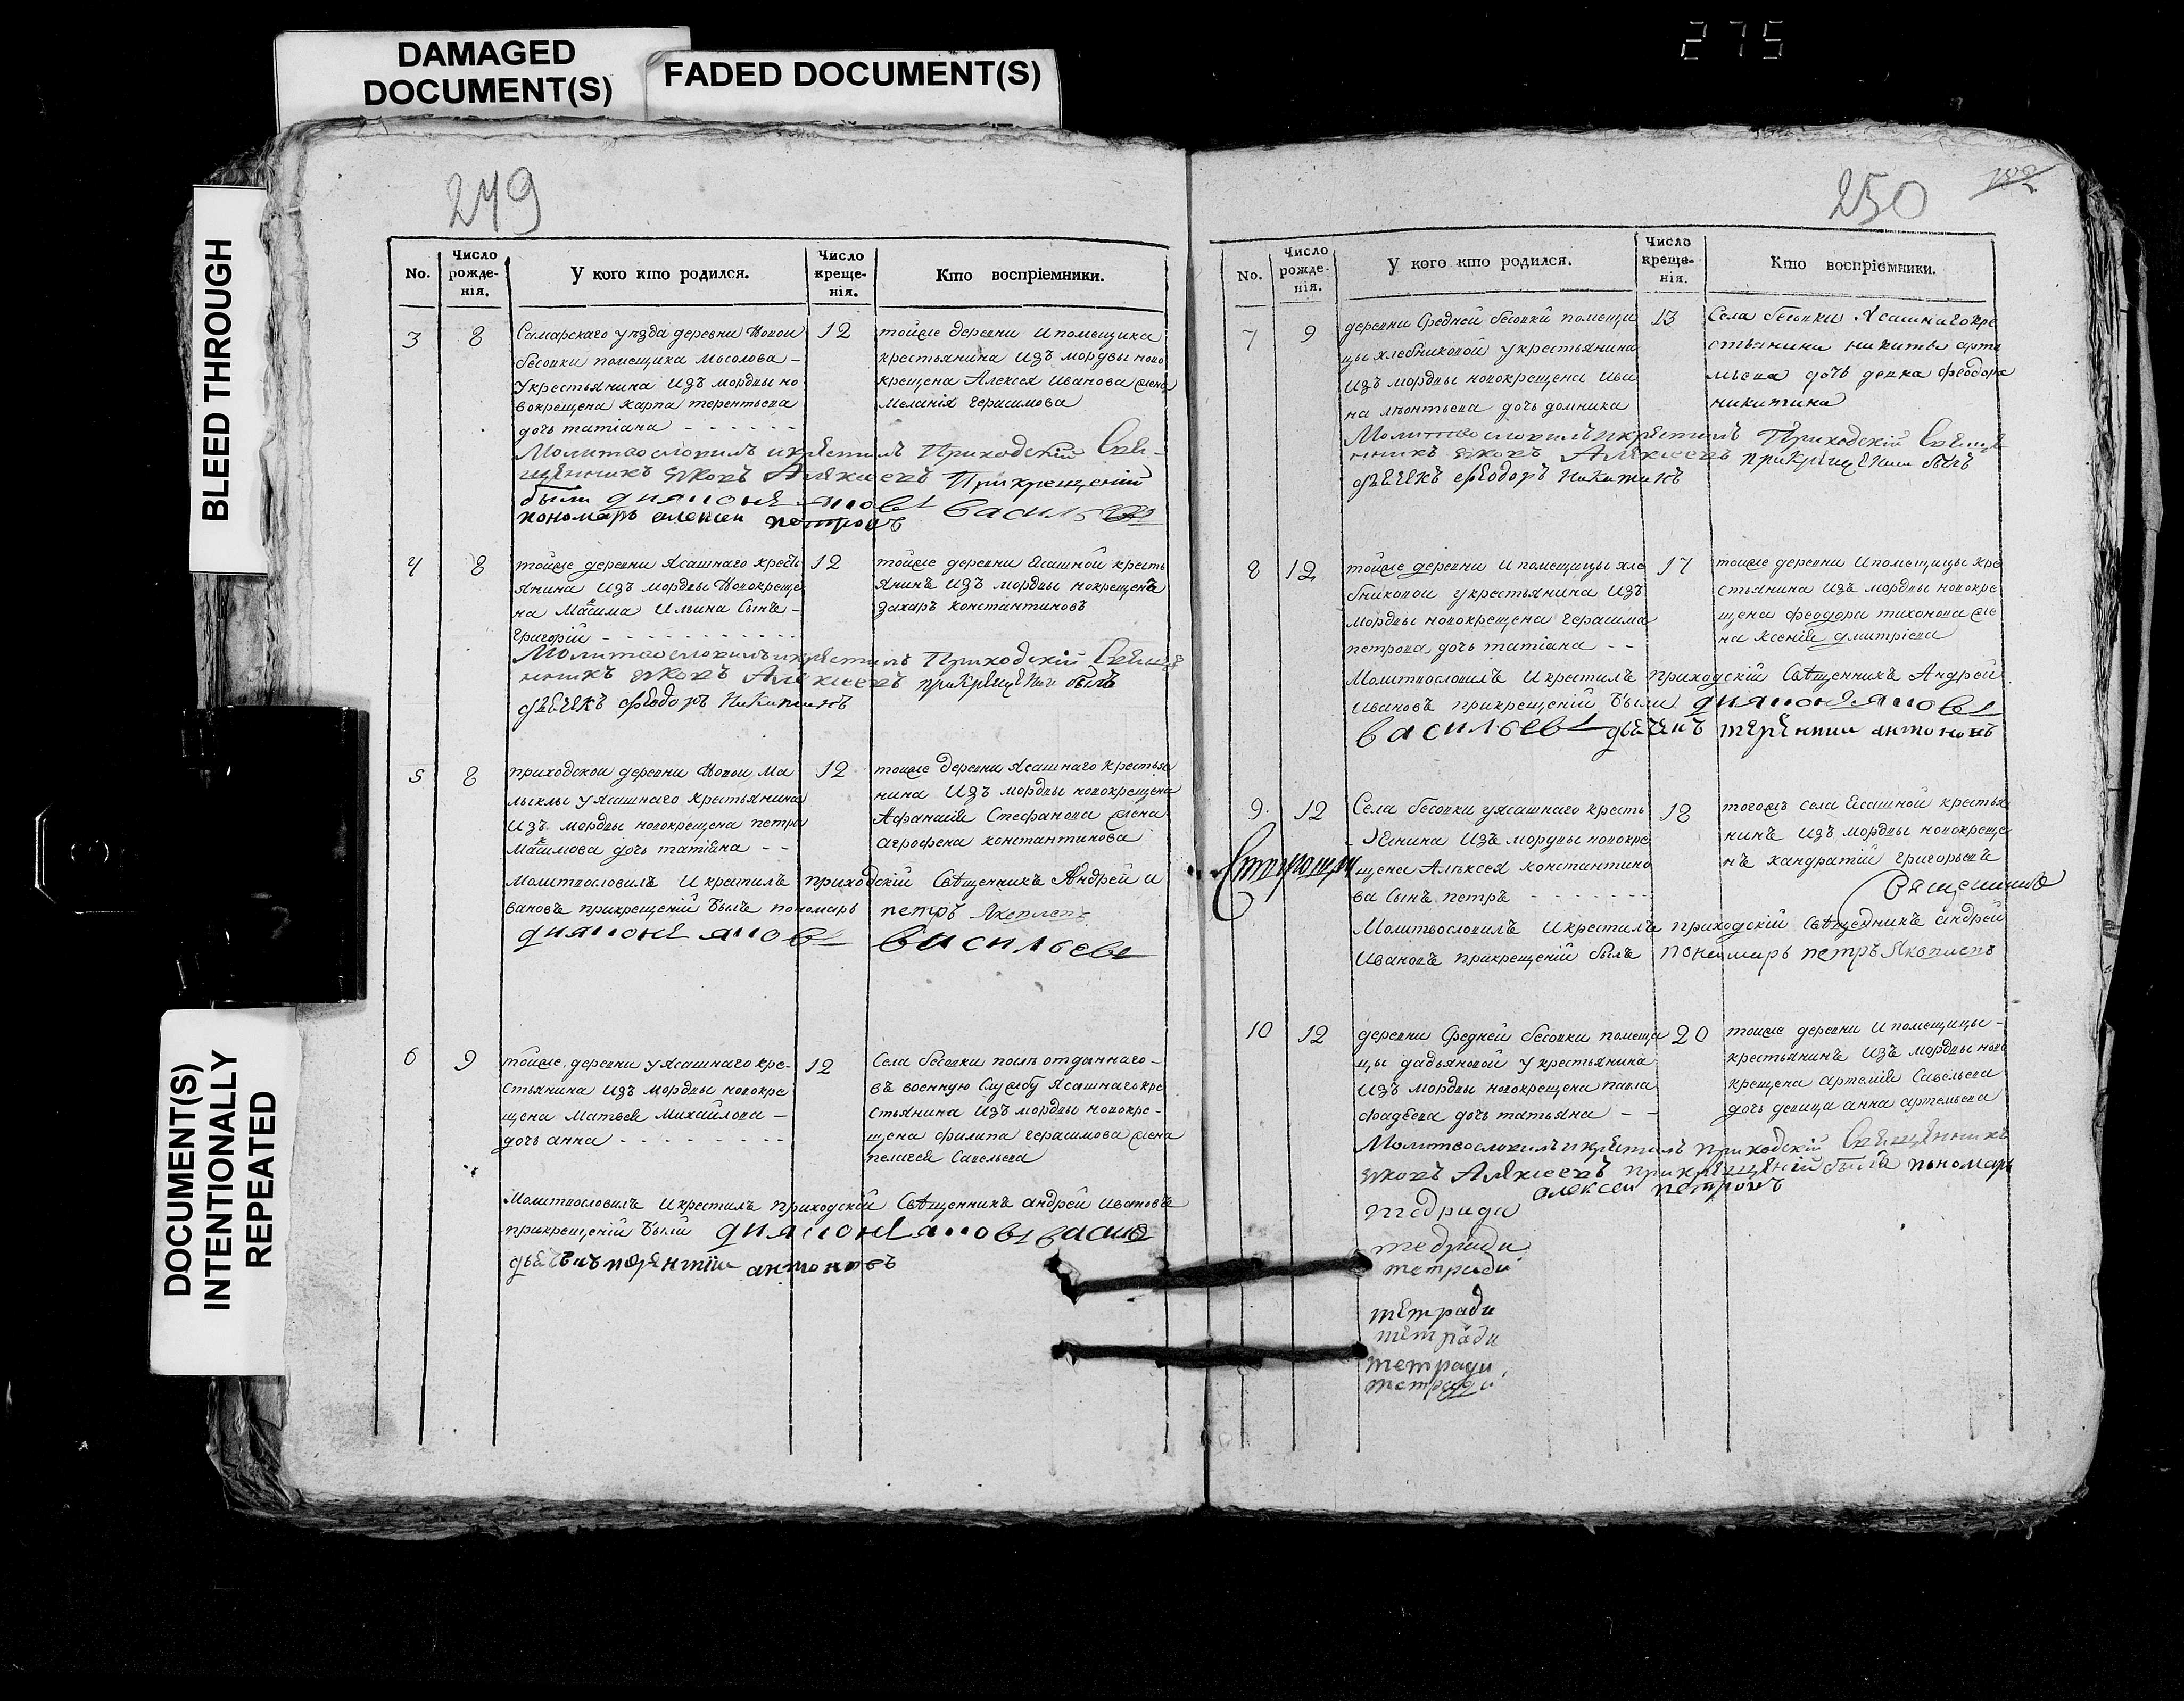 DAMAGED
DOCUMENT(S)
FADED DOCUMENT(S)
275
BLEED THROUGH
DOCUMENT(S)
INTENTIONALLY
REPEATED
249
No.
Число рожде- нія.
У кого кто родился.
Число креще- нія.
Кто воспріемники.
3
8
Самарскаго уезда деревни Новои
бесовки помещика Мосолова -
у крестьянина изъ мордвы но
вокрещена карпа терентьева
дочь татіана
12
тойже деревни и помещика
крестьянина изъ мордвы ново
крещена Алексея Иванова жена
Меланія герасимова
Молитвословилъ и крестилъ Приходскій Свя-
щенникъ яковъ Алексеевъ При крещеніи
были дияконъ яковъ васильевъ
пономарь алексеи петровъ
4
8
тойже деревни Ясашнаго кресть
янина изъ мордвы Новокреще
на Максима Ильина Сынъ -
григорій
12
тойже деревни Ясашной кресть
янинъ изъ мордвы нокрещенъ
захаръ константиновъ
Молитвословилъ и крестилъ Приходскій Свяще
нникъ яковъ Алексеевъ при крещеніи былъ
дьечекъ феодоръ Никитинъ
5
8
приходскои деревни Новои Ма
лыклы у Ясашнаго крестьянина
изъ мордвы новокрещена петра
Максимова дочь татіана - -
12
тоиже деревни Ясашнаго крестья
нина изъ мордвы новокрещена
Афанасія Стефанова жена
агрофена константинова
молитвословилъ и крестилъ приходскій Священникъ Андрей и
вановъ прикрещеній былъ пономарь петръ Яковлевъ
дияконъ яковъ васильевъ
6
9
тойже деревни у Ясашнаго кре-
стьянина изъ мордвы новокре
щена Матвея Михайлова -
дочь анна
12
Села бесовки отданнаго -
въ военную Службу Ясашнаго кре
стьянина изъ мордвы новокре-
щена филипа герасимова жена
пелагея Савельева
Молитвословилъ и крестилъ приходскій Священникъ андрей Ивановъ
прикрещеній были дияконъ яковъ
дьечекъ терентии антоновъ
250
No.
Число рожде- нія.
У кого кто родился.
Число креще- нія.
Кто воспріемники.
7
9
деревни Средней бесовки помещи
цы хлебниковой у крестьянина
изъ мордвы новокрещена Ива
на леонтьева дочь домника
13
Села бесовки Ясашнаго кре
стьянина никиты арте
мьева дочь девка феодора
никитина
Молитвословилъ и крестилъ Приходскій Свяще
нникъ яковъ Алексеевъ прикрещеніи былъ
дьечекъ феодоръ Никитинъ
8
12
тойже деревни и помещицы хле
бниковои у крестьянина изъ
мордвы новокрещена герасима
петрова дочь татіана - -
17
тоиже деревни и помещицы кре
стьянина изъ мордвы новокре
щена феодора тихонова же
на ксенія дмитріева
Молитвословилъ и крестилъ приходскій Священникъ Андрей
Ивановъ прикрещеній были дияконъ яковъ
васильевъ дьечекъ терентии антоновъ
9.
12
Села бесовки у Ясашнаго кресть
янина изъ мордвы новокре
щена Алексея константино
ва Сынъ петръ
18
тогожъ села Ясашной крестья
нинъ изъ мордвы новокреще
нъ кандратій григорьевъ
Священникъ
Молитвословилъ и крестилъ приходскій Священникъ андрей
Ивановъ прикрещеній былъ пономарь петръ Яковлевъ
10
12
деревни Средней бесовки помещи
цы дадьяновой у крестьянина
изъ мордвы новокрещена павла
фадеева дочь татьяна - -
20
тоиже деревни и помещицы -
крестьянинъ изъ мордвы ново
крещена артемія Савельева
дочь девица анна артемьева
Молитвословилъ и крестилъ приходскій Священникъ
яковъ Алексеевъ прикрещеній былъ пономарь
алексеи петровъ
тедради
тедради
тетради
тетради
тетради
тетради
тетради